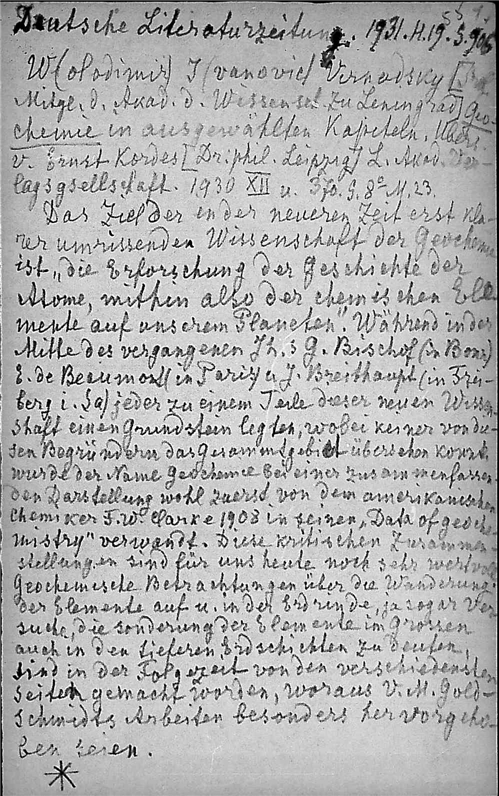 Deutsche Literaturzeitung. 1931.H.19.S.905
W(olodimir) I(vanovic) Vernadsky [
Mitgl. d. Akad. d. Wissensch. zu Leningrad] Geo-
chemie in ausgewählten Kapiteln. Übers.
v. Ernst Kordes [Dr. phil. Leipzig] L. Akad. Ver-
lagsgsellschaft. 1930 XII u. 370. S. 8° M. 23.
Das Ziel der in der neueren Zeit erst kla-
rer umrissenden Wissenschaft der Geochemie
ist „die Erforschung der Geschichte der
Atome, mithin also der chemischen Ele
mente auf unserem Planeten". Während in der
Mitte des vergangenen Jh.s G. Bischof (in Bonn)
E. de Beaumont (in Paris) u J. Breithaupt (in Frei-
berg i. Sa) jeder zu einem Teile dieser neuen Wissen
shaft einen Grundstein legten, wobei keiner von die-
sen Begründern das Gesammtgebiet übersehen konnte
wurde der Name Geochemie bei einer zusammenfassen-
den Darstellung wohl zuerst von dem amerikanischen
Chemiker F.W. Clarke 1908 in seinen „Data of geoche
mistry" verwandt. Diese kritischen Zusammen-
stellungen sind für uns heute noch sehr wertvoll
Geochemische Betrachtungen über die Wanderung
der Elemente auf u. in der Erdrinde, ja sogar Ver
suche, die sonderung der Elemente im Grossen
auch in den tieferen Erdschichten zu deuten,
sind in der Folgezeit von den verschiedensten
seiten gemacht worden, woraus V. M. Gold-
schmidts Arbeiten besonders hervorgeho-
ben seien.